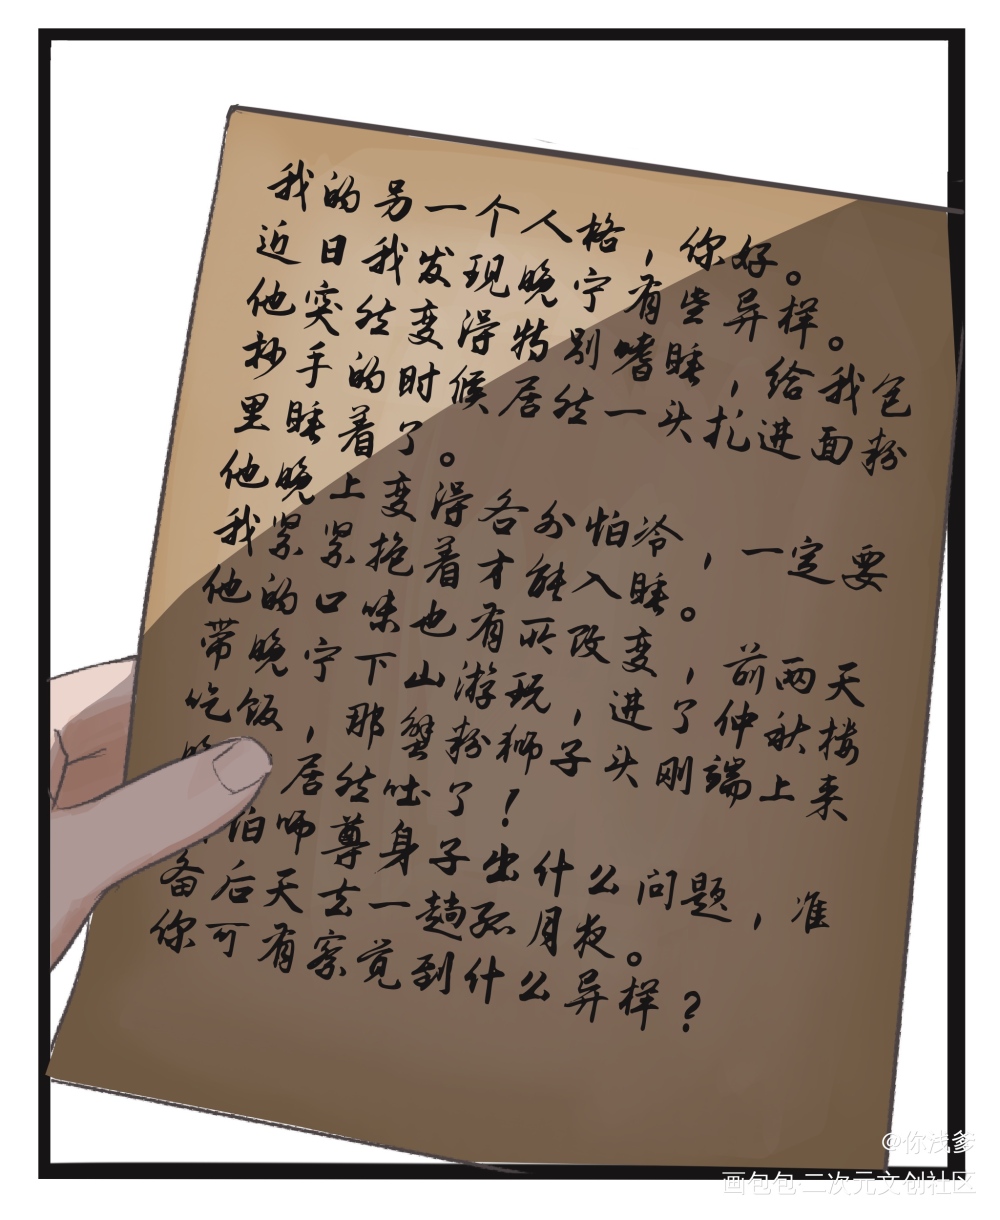 我的另一个人格，你好。
近日我发现晚宁有些异样。
他突然变得特别嗜睡，给我包
抄手的时候居然一头扎进面粉
里睡着了。
他晚上变得各外怕冷，一定要
我紧紧抱着才能入睡。
他的口味也有所改变，前两天
带晚宁下山游玩，进了仲秋楼
吃饭，那蟹粉狮子头刚端上来
居然吐了！
怕师尊身子出什么问题，准
备后天去一趟孤月夜。
你可有察觉到什么异样？
@你浅爹
画包包·二次元文创社区